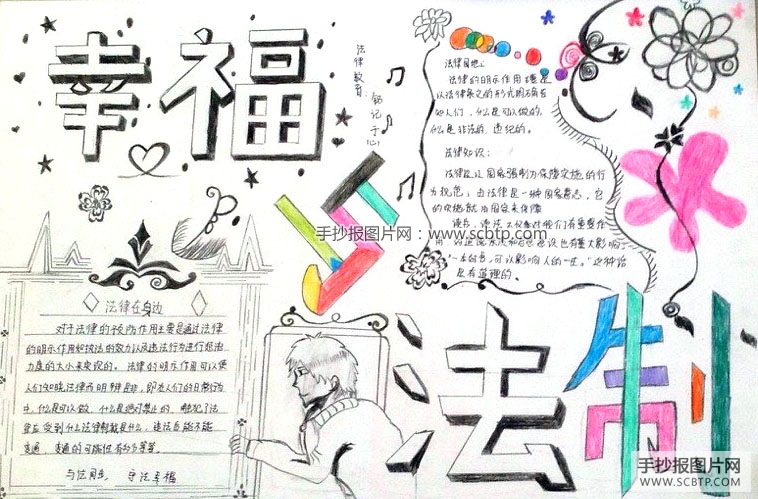 幸福
与
法制
法律教育
铭记于心
法律园地：
法律的明示作用主要是
以法律条文的形式明确告
知人们，什么是可以做的，
什么是非法的、违纪的。
法律知识：
法律是以国家强制力保障实施的行
为规范；
法律是一种国家意志，它
的实施就由国家来保障
手抄报图片网：www.scbtp.com
"一本好书，可以影响人的一生。"这种话
是有道理的。
法律在身边
对于法律的预防作用主要是通过法律
的明示作用和执法的效力以及违法行为进行惩治
力度的大小来实现的。法律的明示作用可以使
人们知晓法律而明辨是非，即在人们的日常行为
中，什么是可以做，什么是绝对禁止的，触犯了法
律应受到什么法律制裁是什么，违法后能不能
变通，变通的可能性有多少等等。
与法同行，守法幸福
手抄报图片网
WWW.SCBTP.COM